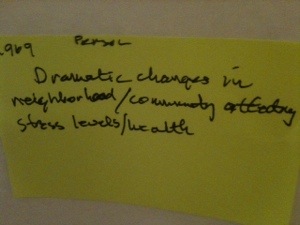 1969 Person
Dramatic changes in
neighborhood/community affecting
stress levels/health